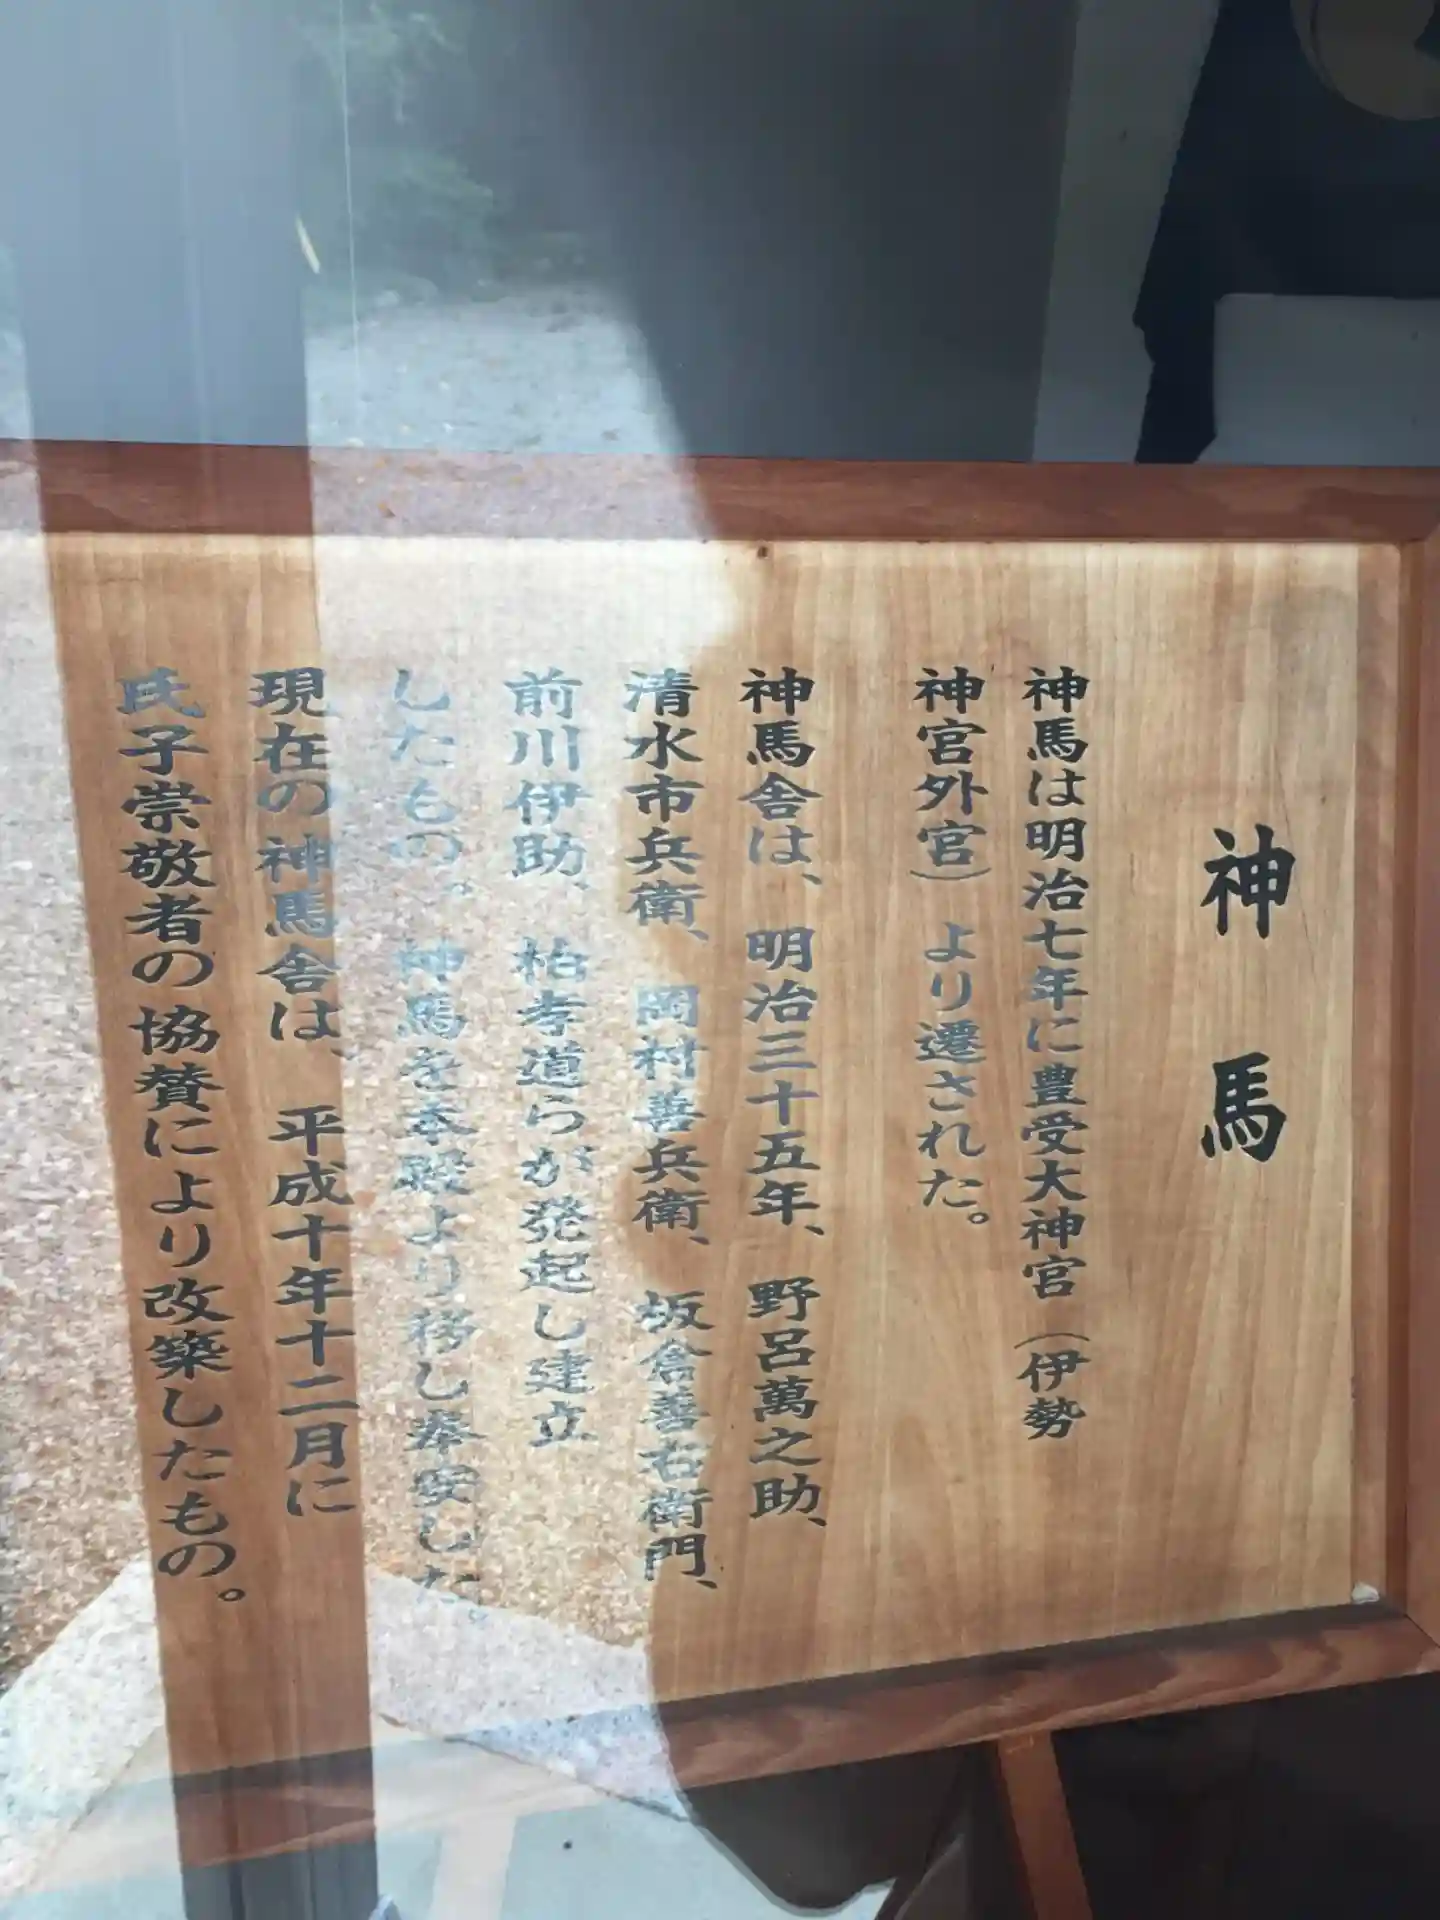 神馬
神馬は明治七年に豊受大神宮（伊勢
神宮外宮）より遷された。
神馬舎は、明治三十五年、野呂萬之助、
清水市兵衛、岡村善兵衛、坂倉善右衛門、
前川伊助、柘孝道らが発起し建立
したもの。神馬を本殿より移し奉安した。
現在の神馬舎は、平成十年十二月に
氏子崇敬者の協賛により改築したもの。